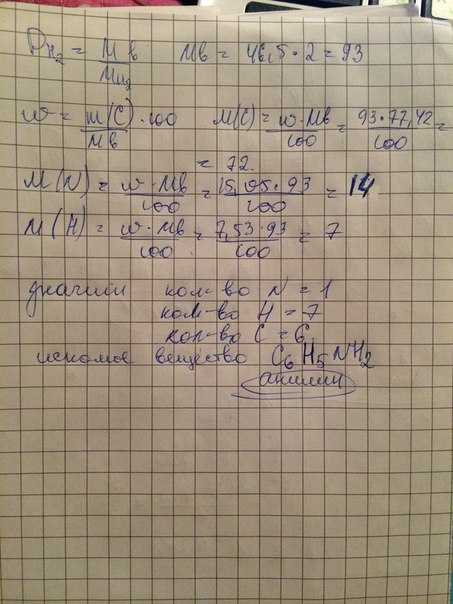 D H₂ = M в / M H₂   Mв = 46,5 · 2 = 93
w = m(C) · 100 / Mв   M(C) = w · Mв / 100 = 93 · 77,42 / 100 =
= 72.
M(N) = w · Mв / 100 = 15,05 · 93 / 100 = 14
M(H) = w · Mв / 100 = 7,53 · 93 / 100 = 7
значит кол-во N = 1
кол-во H = 7
кол-во C = 6
искомое вещество C₆H₅NH₂
анилин